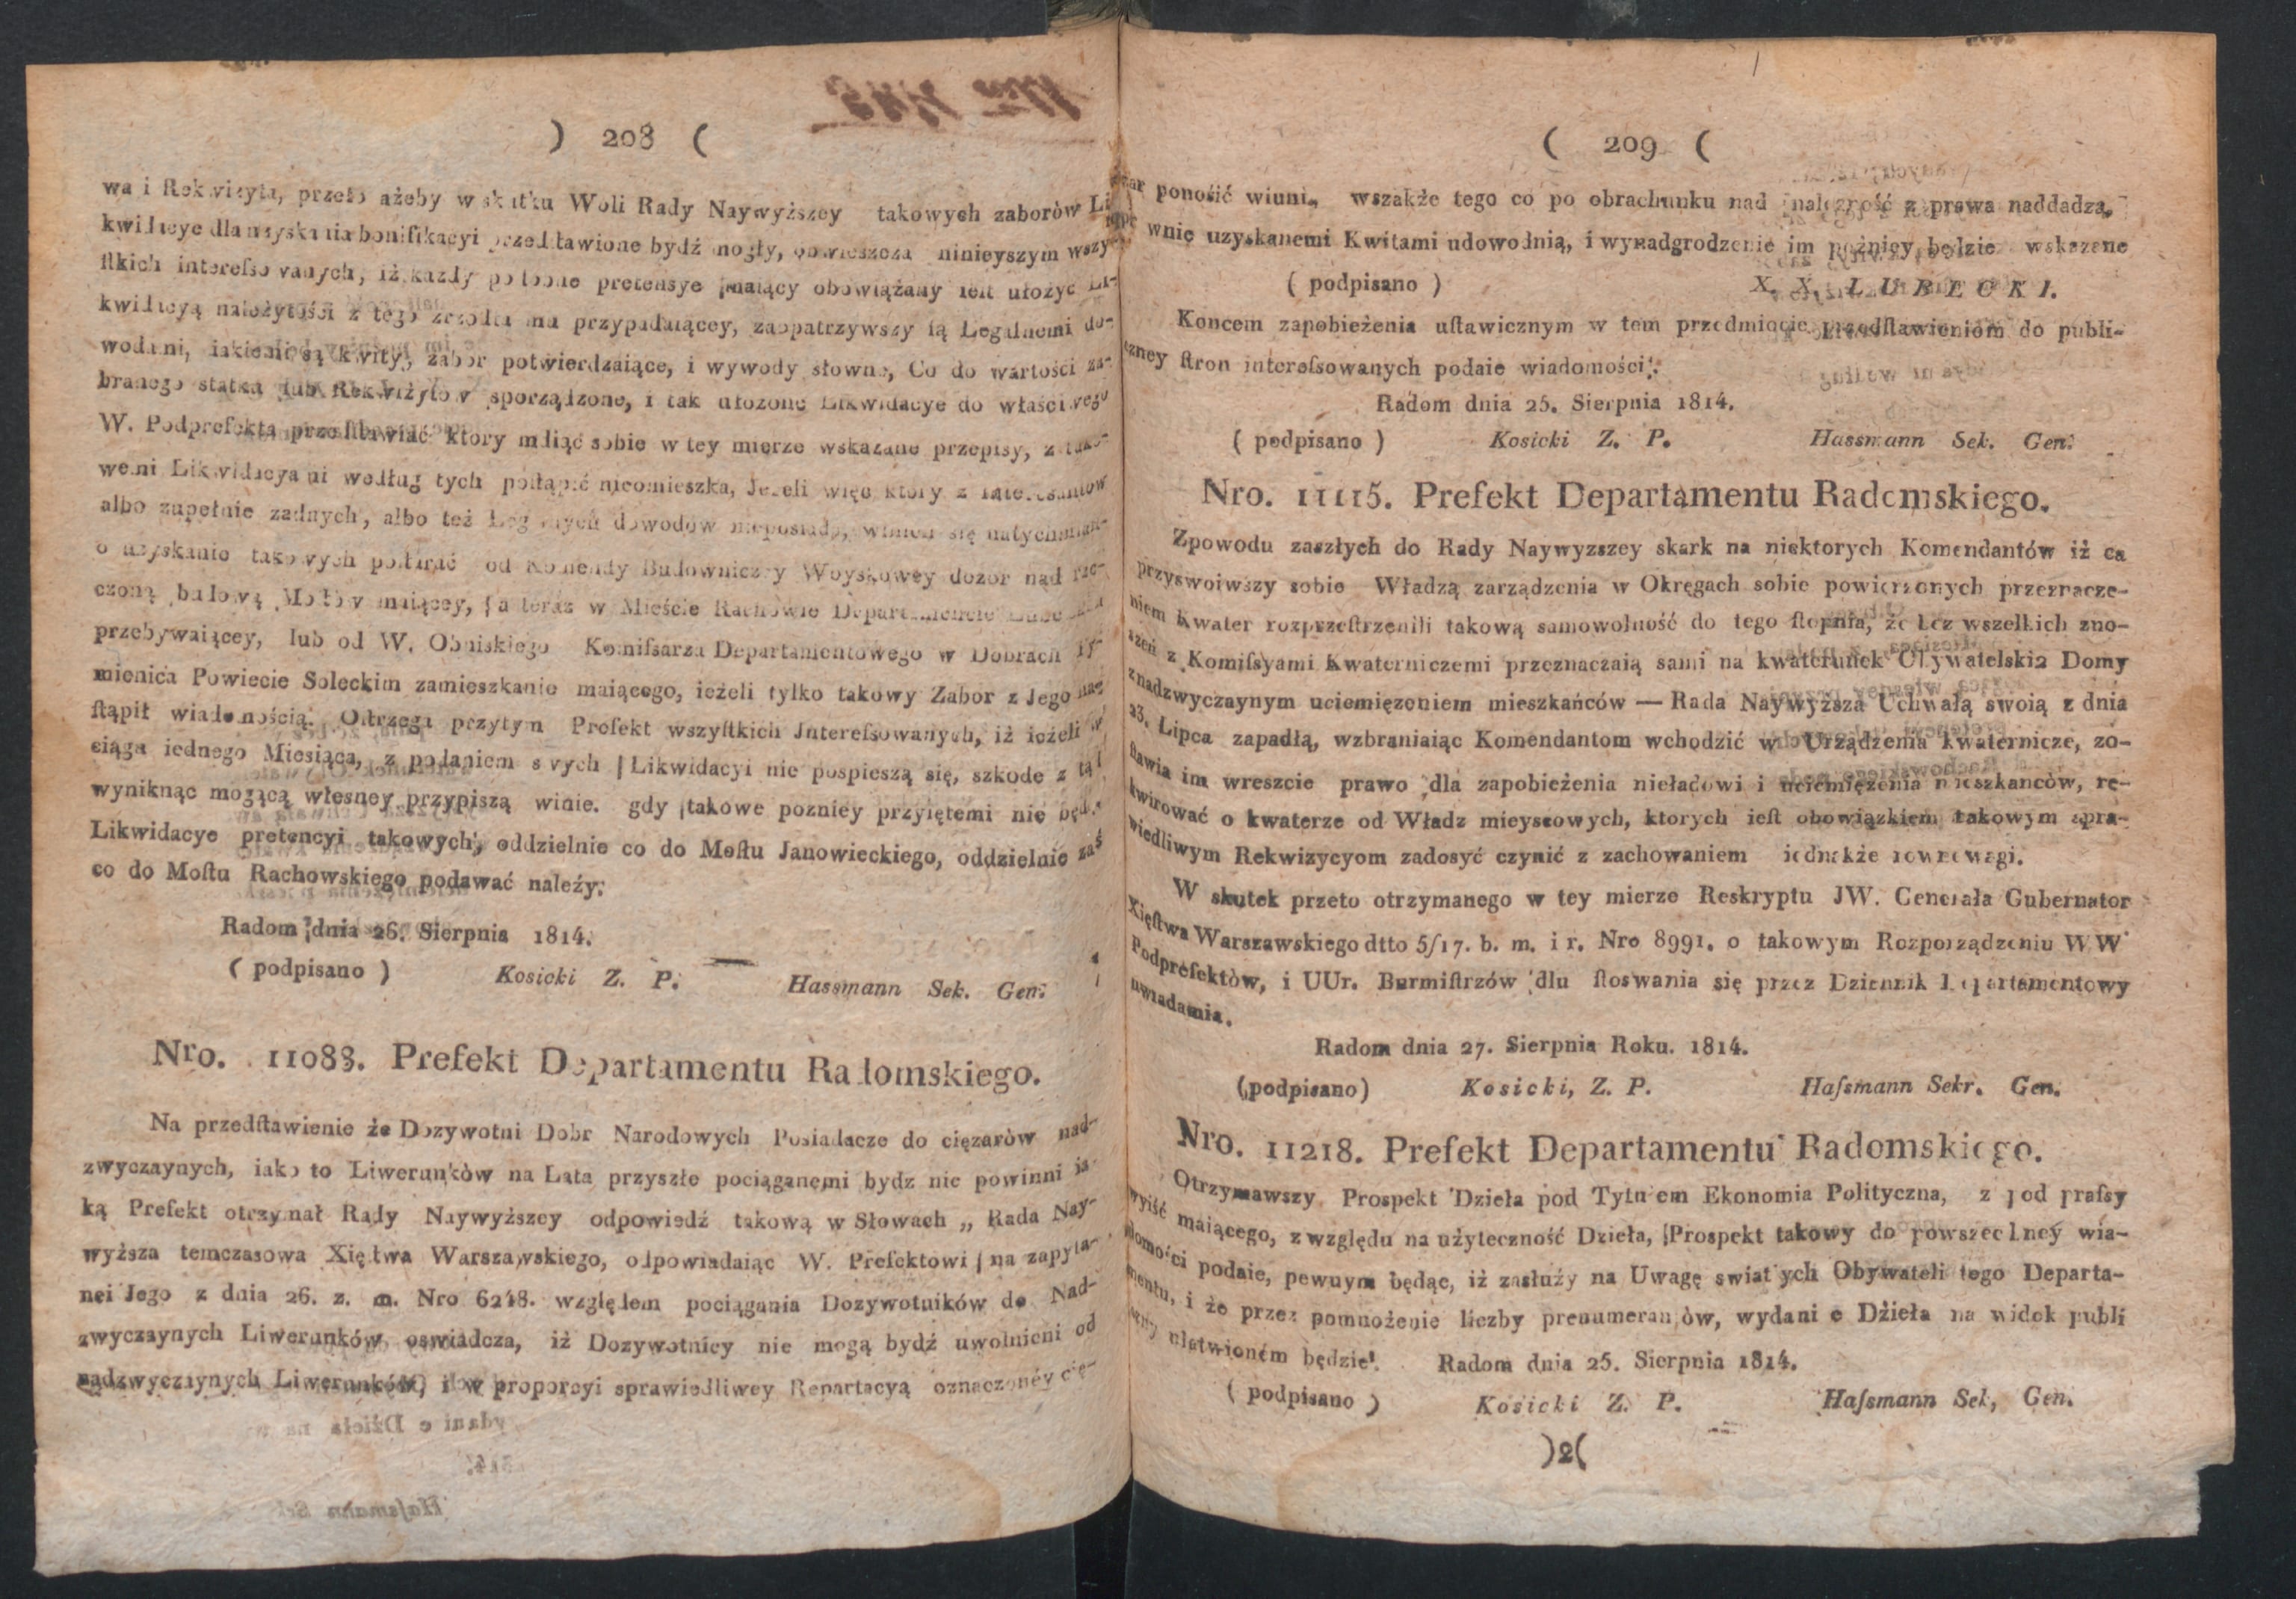 ) 208 (
wa i Rekwizyta, przeto ażeby w skutku Woli Rady Naywyższey takowych zaboròw Li
kwidacye dla uzyskania bonifikacyi przedstawione bydź mogły, obwieszcza ninieyszym wszy-
stkich interessowanych, iż każdy podobne pretensye maiący obowiążany iest ułożyć Li-
kwidacyą należytości z tego zrzodła mu przypadaiącey, zaopatrzywszy ią Legalnemi do-
wodami, iakiemi są kwity, zabor potwierdzaiące, i wywody słowne, Co do wartości za-
branego statku lub Rekwizytow sporządzone, i tak ułożone Likwidacye do właściwego
W. Podprefekta przestawiać ktory maiąc sobie w tey mierze wskazane przepisy, z tako-
wemi Likwidacyami według tych postąpić nieomieszka, Jeżeli więc ktory z interesantow
albo zupełnie żadnych, albo też Legalnych dowodów nieposiada, winien się natychmiast
o uzyskanie takowych postarać od Komendy Budowniczey Woyskowey dozor nad rze-
czoną budową Mostów maiącey, a teraz w Mieście Rachowie Departamencie
przebywaiącey, lub od W. Obniskiego Komissarza Departamentowego w Dobrach
mienica Powiecie Soleckim zamieszkanie maiącego, ieżeli tylko takowy Zabor z Jego na-
stąpił wiadomością. Ostrzega przytym Prefekt wszystkich Jnteressowanych, iż ieżeli w
ciągu iednego Miesiąca, z podaniem swych Likwidacyi nie pospieszą się, szkodę z tąd
wyniknąc mogącą włesney przypiszą winie. gdy takowe poznley przyiętemi nie będą
Likwidacye pretencyi takowych, oddzielnie co do Mostu Janowieckiego, oddzielnie zaś
co do Mostu Rachowskiego podawać należy.
Radom dnia 26. Sierpnia 1814.
( podpisano ) Kosicki Z. P. Hassmann Sek. Gen.
Nro. 11088. Prefekt Departamentu Radomskiego.
Na przedstawienie że Dozywotni Dobr Narodowych Posiadacze do ciężarów nad-
zwyczaynych, iako to Liwerunków na Lata przyszłe pociąganemi bydz nie powinni ia-
ką Prefekt otrzymał Rady Naywyższey odpowiedź takową w Słowach „ Rada Nay-
wyższa temczasowa Xięstwa Warszawskiego, odpowiadaiąc W. Prefektowi na zapyta-
nei Jego z dnia 26. z. m. Nro 6248. względem pociągania Dozywotników do Nad-
zwyczaynych Liwerunków, oswiadcza, iż Dozywotnicy nie mogą bydź uwolnieni od
nadzwyczaynych Liwerunków, i w proporcyi sprawiedliwey Repartacyą oznaczoney cię-
( 209 (
żar ponosić winni, wszakże tego co po obrachunku nad należność z prawa naddadzą,
wnie uzyskanemi Kwitami udowodnią, i wynadgrodzenie im poźniey będzie wskazane
( podpisano ) X. X. LUBECKI.
Koncem zapobieżenia ustawicznym w tem przedmiocie przedstawieniom do publi-
czney stron interessowanych podaie wiadomości.
Radom dnia 25. Sierpnia 1814.
( podpisano ) Kosicki Z. P. Hassmann Sek. Gen.
Nro. 11115. Prefekt Departamentu Radomskiego.
Zpowodu zaszłych do Rady Naywyzszey skark na niektorych Komendantów iż ca
przyswoiwszy sobie Władzą zarządzenia w Okręgach sobie powierzonych przeznacze-
niem Kwater rozprzestrzenili takową samowolność do tego stopnia, że bez wszelkich zno-
szeń z Komissyami Kwaterniczemi przeznaczaią sami na kwaterunek Obywatelskia Domy
z nadzwyczaynym uciemięzeniem mieszkańców — Rada Naywyższa Uchwałą swoią z dnia
23. Lipca zapadłą, wzbraniaiąc Komendantom wchodzić w Urządzenia kwaternicze, zo-
stawia im wreszcie prawo dla zapobieżenia nieładowi i uciemiężenia mieszkancòw, re-
kwirować o kwaterze od Władz mieyscowych, ktorych iest obowiązkiem takowym spra-
wiedliwym Rekwizycyom zadosyć czynić z zachowaniem iednakże rownowagi.
W skutek przeto otrzymanego w tey mierze Reskryptu JW. Generała Gubernator
Xięstwa Warszawskiego dtto 5/17. b. m. i r. Nro 8991. o takowym Rozporządzeniu WW
Podprefektòw, i UUr. Burmistrzów dlu stoswania się przez Dziennik Departamentowy
uwiadamia.
Radom dnia 27. Sierpnia Roku. 1814.
(podpisano) Kosicki, Z. P. Hassmann Sekr. Gen.
Nro. 11218. Prefekt Departamentu Radomskiego.
Otrzymawszy Prospekt Dzieła pod Tytułem Ekonomia Polityczna, z pod prassy
wyiść maiącego, z względu na użyteczność Dzieła, Prospekt takowy do powszechney wia-
domości podaie, pewnym będąc, iż zasłuży na Uwagę swiatłych Obywateli tego Departa-
mentu, i że przez pomnożenie liczby prenumerantòw, wydani e Dźieła na widok publi
czny ułatwioném będzie. Radom dnia 25. Sierpnia 1814.
( podpisano ) Kosicki Z. P. Hassmann Sek, Gen.
)2(